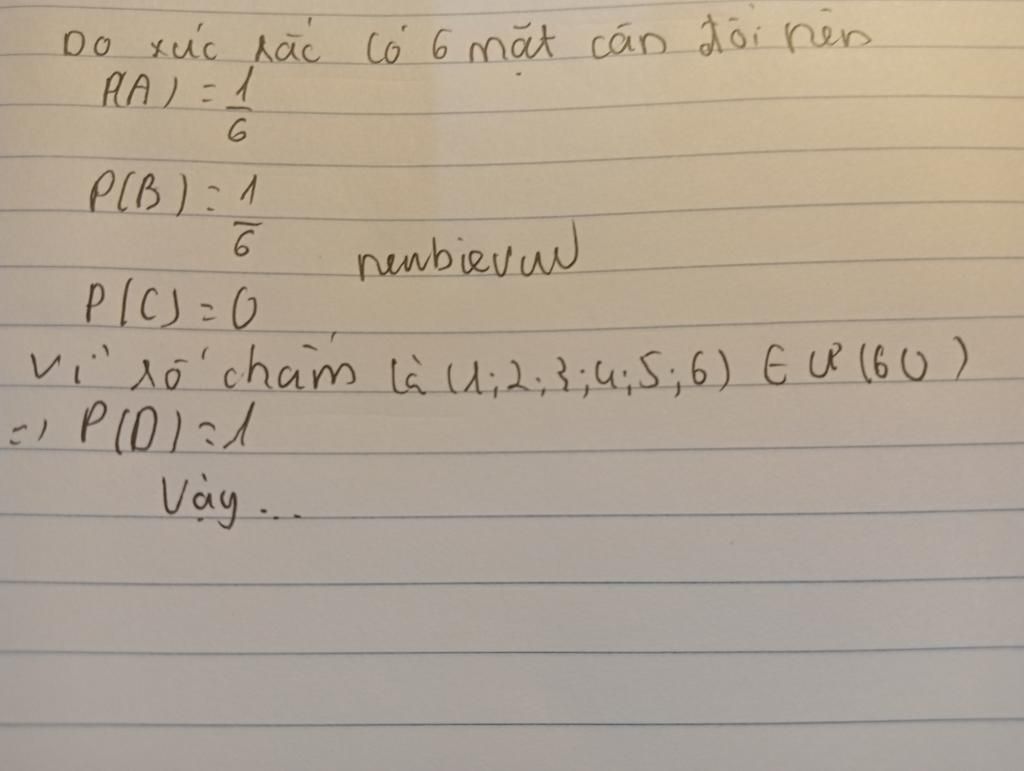 Do xúc xắc có 6 mặt cân đối nên
P(A) = 1/6
P(B) = 1/6
newbievuw
P(C) = 0
Vì số chấm là (1;2;3;4;5;6) ∈ Ư(60)
=) P(D) = 1
Vậy ...